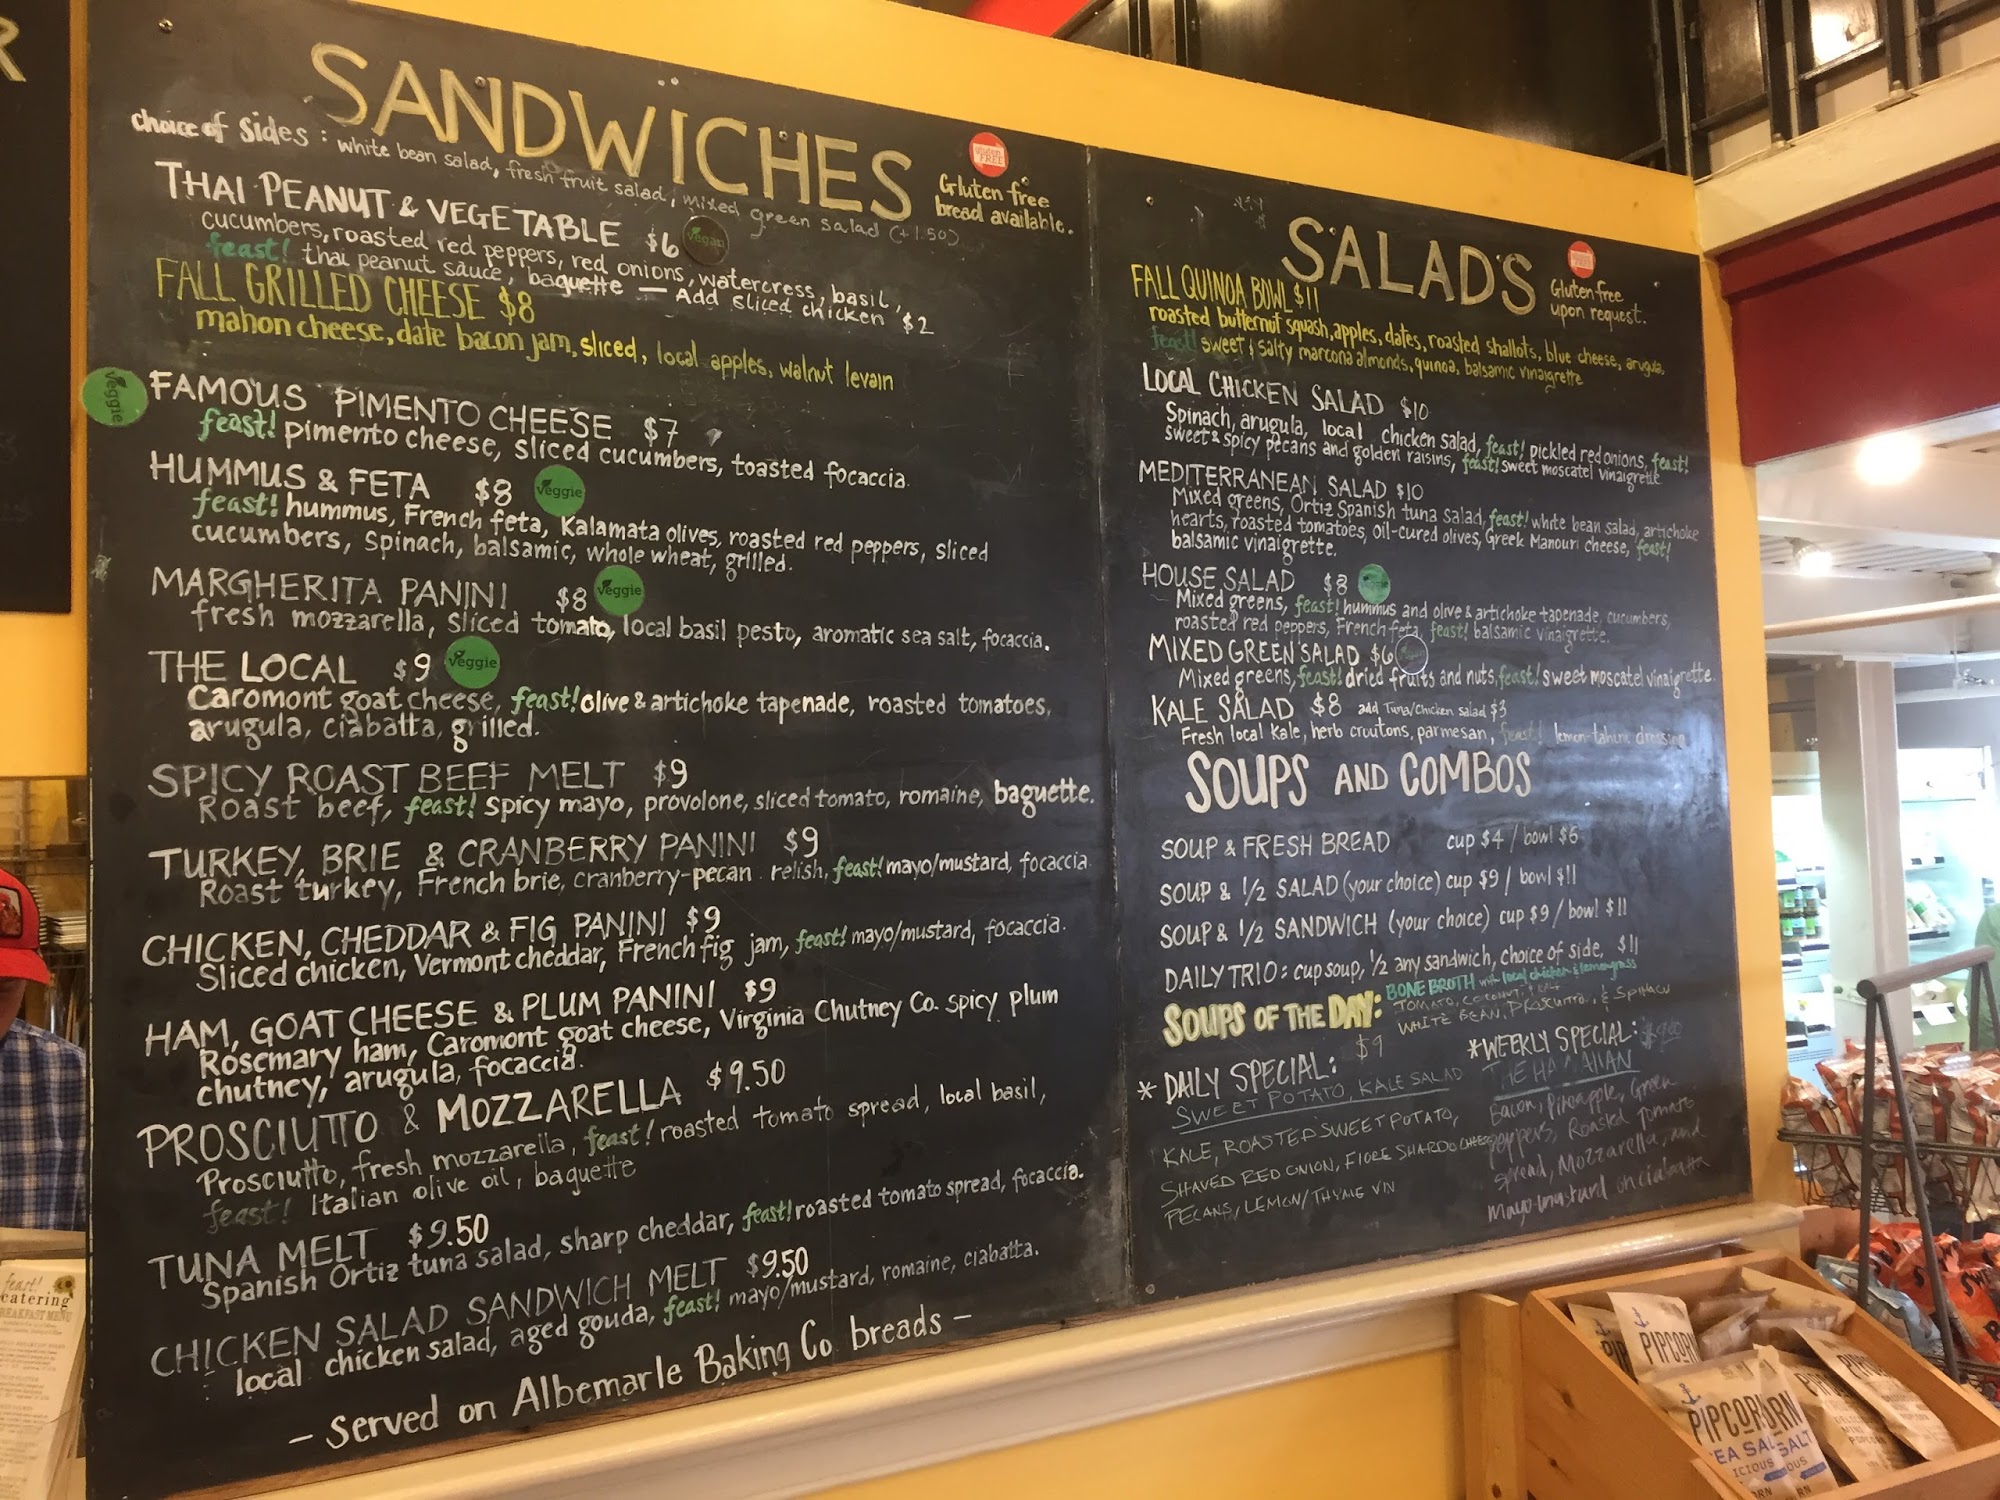 R
SANDWICHES
choice of sides: white bean salad, fresh fruit salad, mixed green salad (+1.50)
gluten FREE
Gluten free
bread available.
THAI PEANUT & VEGETABLE $6 vegan
cucumbers, roasted red peppers, red onions, watercress, basil,
feast! thai peanut sauce, baguette — Add sliced chicken $2
FALL GRILLED CHEESE $8
mahon cheese, date bacon jam, sliced, local apples, walnut levain
veggie
FAMOUS PIMENTO CHEESE $7
feast! pimento cheese, sliced cucumbers, toasted focaccia.
HUMMUS & FETA $8 veggie
feast! hummus, French feta, Kalamata olives, roasted red peppers, sliced
cucumbers, spinach, balsamic, whole wheat, grilled.
MARGHERITA PANINI $8 veggie
fresh mozzarella, sliced tomato, local basil pesto, aromatic sea salt, focaccia.
THE LOCAL $9 veggie
Caromont goat cheese, feast! olive & artichoke tapenade, roasted tomatoes,
arugula, ciabatta, grilled.
SPICY ROAST BEEF MELT $9
Roast beef, feast! spicy mayo, provolone, sliced tomato, romaine, baguette.
TURKEY, BRIE & CRANBERRY PANINI $9
Roast turkey, French brie, cranberry-pecan relish, feast! mayo/mustard, focaccia.
CHICKEN, CHEDDAR & FIG PANINI $9
Sliced chicken, Vermont cheddar, French fig jam, feast! mayo/mustard, focaccia.
HAM, GOAT CHEESE & PLUM PANINI $9
Rosemary ham, Caromont goat cheese, Virginia Chutney Co. spicy plum
chutney, arugula, focaccia.
PROSCIUTTO & MOZZARELLA $9.50
Prosciutto, fresh mozzarella, feast! roasted tomato spread, local basil,
feast! Italian olive oil, baguette
TUNA MELT $9.50
Spanish Ortiz tuna salad, sharp cheddar, feast! roasted tomato spread, focaccia.
CHICKEN SALAD SANDWICH MELT $9.50
local chicken salad, aged gouda, feast! mayo/mustard, romaine, ciabatta.
- served on Albemarle Baking Co breads -
SALADS
Gluten free
upon request.
FALL QUINOA BOWL $11
roasted butternut squash, apples, dates, roasted shallots, blue cheese, arugula,
feast! sweet & salty marcona almonds, quinoa, balsamic vinaigrette
LOCAL CHICKEN SALAD $10
Spinach, arugula, local chicken salad, feast! pickled red onions, feast!
sweet & spicy pecans and golden raisins, feast! sweet moscatel vinaigrette
MEDITERRANEAN SALAD $10
Mixed greens, Ortiz Spanish tuna salad, feast! white bean salad, artichoke
hearts, roasted tomatoes, oil-cured olives, Greek Manouri cheese, feast!
balsamic vinaigrette.
HOUSE SALAD $8 veggie
Mixed greens, feast! hummus and olive & artichoke tapenade, cucumbers,
roasted red peppers, French feta, feast! balsamic vinaigrette.
MIXED GREEN SALAD $6
Mixed greens, feast! dried fruits and nuts, feast! sweet moscatel vinaigrette.
KALE SALAD $8 add Tuna/Chicken salad $3
Fresh local Kale, herb croutons, parmesan, feast! lemon-tahini dressing
SOUPS AND COMBOS
SOUP & FRESH BREAD cup $4 / bowl $6
SOUP & 1/2 SALAD (your choice) cup $9 / bowl $11
SOUP & 1/2 SANDWICH (your choice) cup $9 / bowl $11
DAILY TRIO: cup soup, 1/2 any sandwich, choice of side, $11
SOUPS OF THE DAY: BONE BROTH with local chicken & lemongrass
TOMATO, COCONUT, & KALE
WHITE BEAN, PROSCIUTTO, & SPINACH
* DAILY SPECIAL: $9
SWEET POTATO, KALE SALAD
KALE, ROASTED SWEET POTATO,
SHAVED RED ONION, FIORE SHARDO CHEESE
PECANS, LEMON/THYME VIN
* WEEKLY SPECIAL:
THE HAWAIIAN
Bacon, Pineapple, Green
peppers, Roasted Tomato
spread, Mozzarella, and
mayo-mustard on ciabatta
feast!
catering
BREAKFAST MENU
PIPCORN
PIPCORN
SEA SALT